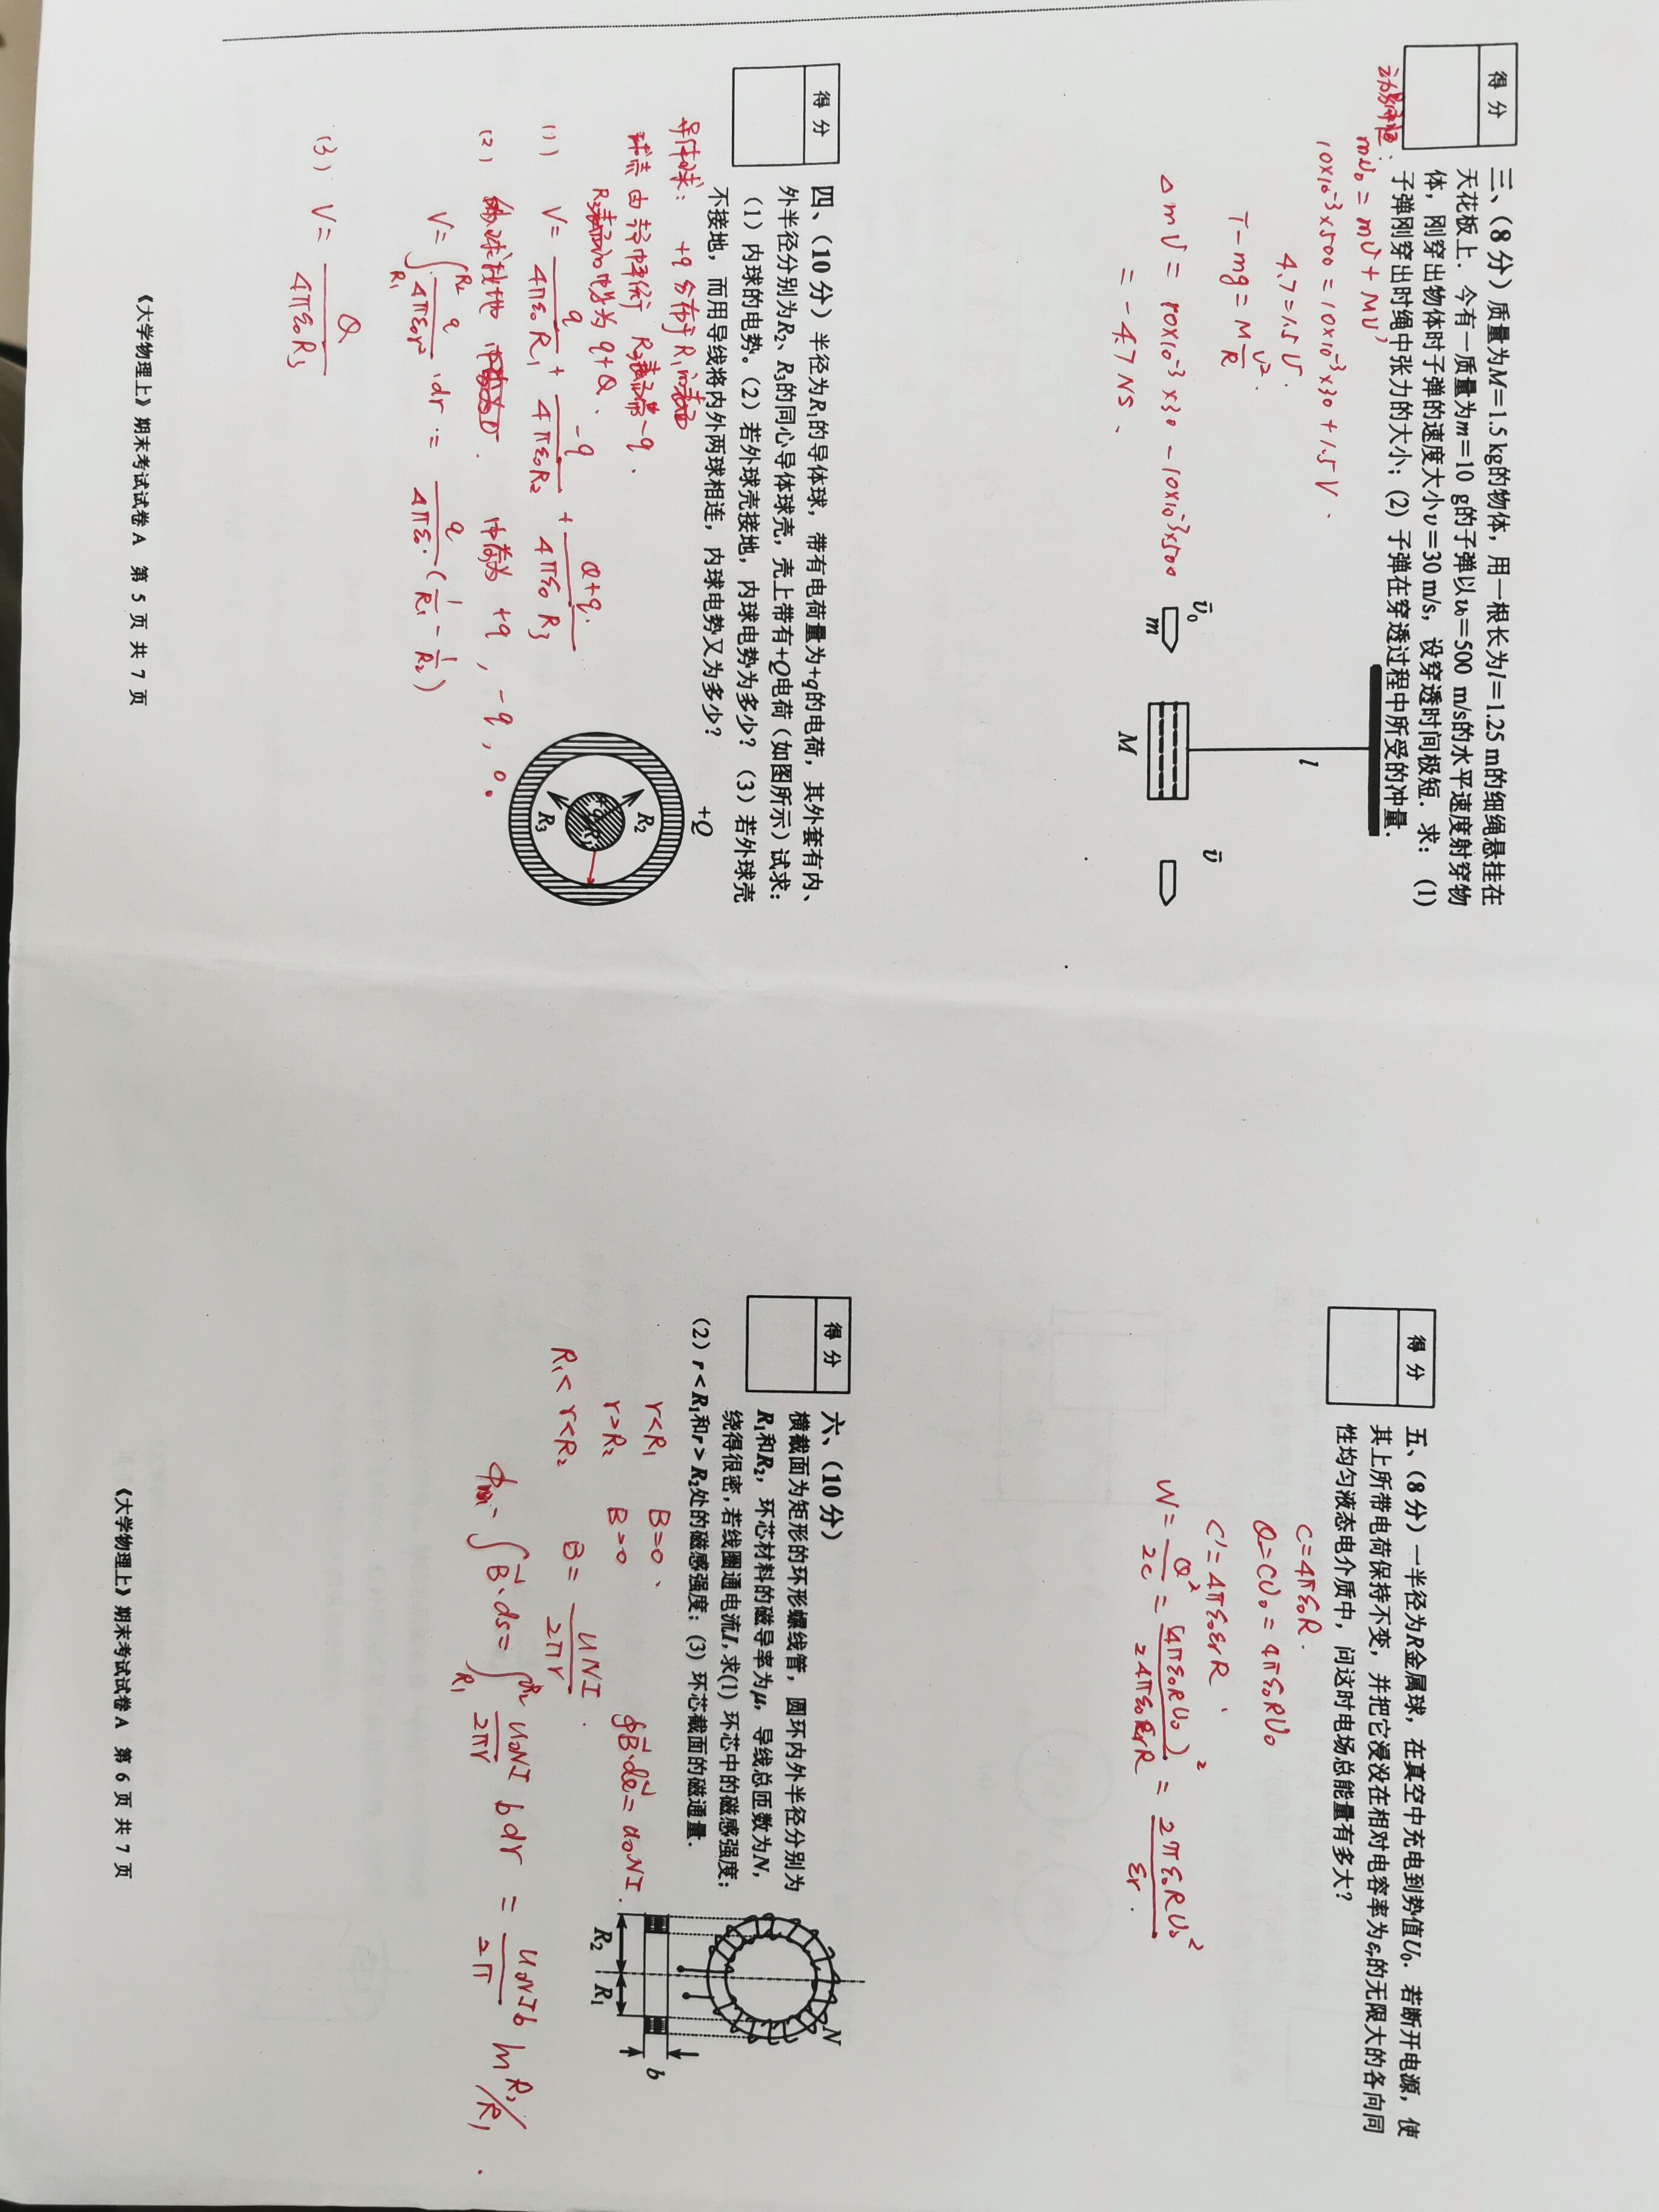 得 分
三、（8 分）质量为M＝1.5 kg的物体，用一根长为l＝1.25 m的细绳悬挂在
天花板上．今有一质量为m＝10 g的子弹以v₀＝500 m/s的水平速度射穿物
体，刚穿出物体时子弹的速度大小v＝30 m/s，设穿透时间极短．求： (1)
子弹刚穿出时绳中张力的大小；(2) 子弹在穿透过程中所受的冲量．
动量守恒：
mv₀ = mv + MV'
10×10⁻³×500 = 10×10⁻³×30 + 1.5 V .
4.7 = 1.5 V .
T − mg = M V²/R .
△mV = 10×10⁻³×30 − 10×10⁻³×500
= −4.7 NS .
l
v̄₀
m
M
v̄
得 分
四、（10 分）半径为R₁的导体球，带有电荷量为+q的电荷，其外套有内、
外半径分别为R₂、R₃的同心导体球壳，壳上带有+Q电荷（如图所示）试求：
（1）内球的电势。（2）若外球壳接地，内球电势为多少？（3）若外球壳
不接地，而用导线将内外两球相连，内球电势又为多少？
导体球： +q 分布于 R₁的表面
球壳 由静电平衡 R₂表面带−q .
R₃表面的电势为 q+Q .
(1) V = q/4πε₀R₁ + −q/4πε₀R₂ + Q+q/4πε₀R₃
(2) 外球接地 电荷为 +q , −q , 0 .
V = ∫_{R₁}^{R₂} q/4πε₀r² ·dr = q/4πε₀ (1/R₁ − 1/R₂)
(3) V = Q/4πε₀R₃
+Q
R₂
+q
R₁
R₃
《大学物理上》期末考试试卷 A 第 5 页 共 7 页
得 分
五、（8 分）一半径为R金属球，在真空中充电到势值U₀．若断开电源，使
其上所带电荷保持不变，并把它浸没在相对电容率为εᵣ的无限大的各向同
性均匀液态电介质中，问这时电场总能量有多大？
C=4πε₀R .
Q=CU₀ = 4πε₀RU₀
C'= 4πε₀εrR
W = Q²/2C = (4πε₀RU₀)²/2 4πε₀εrR = 2πε₀RU₀²/εr .
得 分
六、（10 分）
横截面为矩形的环形螺线管，圆环内外半径分别为
R₁和R₂，环芯材料的磁导率为μ，导线总匝数为N，
绕得很密，若线圈通电流I，求(1) 环芯中的磁感强度；
（2）r < R₁和r > R₂处的磁感强度；(3) 环芯截面的磁通量．
r<R₁ B=0 .
r>R₂ B=0
∮B⃗·dl⃗ = u₀NI .
R₁< r<R₂ B = uNI/2πr .
Φm = ∫B⃗·ds = ∫_{R₁}^{R₂} u₀NI/2πr b dr = u₀NIb/2π ln R₂/R₁ .
N
b
R₂
R₁
《大学物理上》期末考试试卷 A 第 6 页 共 7 页